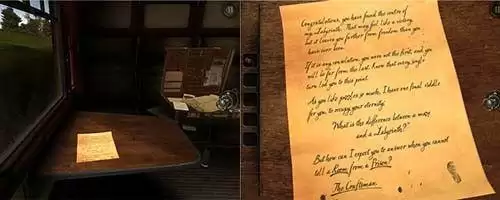 Congratulations, you have found the centre of
my Labyrinth. That may feel like a victory,
but it leaves you further from freedom than you
have ever been.
If it is any consolation, you were not the first, and you
will be far from the last. Know that every single
turn led you to this point.
As you like puzzles so much, I have one final riddle
for you to occupy your eternity:
"What is the difference between a maze
and a Labyrinth?"
But how can I expect you to answer when you cannot
tell a Room from a Prison?
The Craftsman